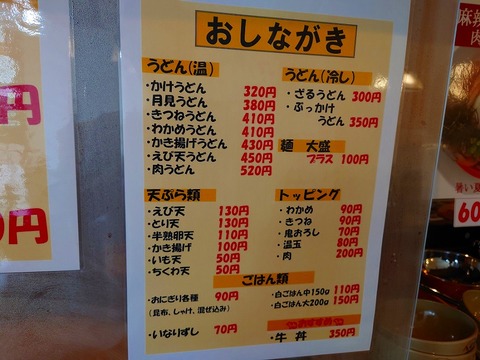 おしながき
うどん(温)
・かけうどん 320円
・月見うどん 380円
・きつねうどん 410円
・わかめうどん 410円
・かき揚げうどん 430円
・えび天うどん 450円
・肉うどん 520円
うどん(冷し)
・ざるうどん 300円
・ぶっかけ
うどん 350円
麺 大盛
プラス 100円
天ぷら類
・えび天 130円
・とり天 130円
・半熟卵天 110円
・かき揚げ 100円
・いも天 50円
・ちくわ天 50円
トッピング
・わかめ 90円
・きつね 90円
・鬼おろし 70円
・温玉 80円
・肉 200円
ごはん類
・おにぎり各種 90円
(昆布、しゃけ、混ぜ込み)
・いなりずし 70円
・白ごはん中150g 110円
・白ごはん大200g 150円
おすすめ
・牛丼 350円
円
0円
麻辣
肉
60